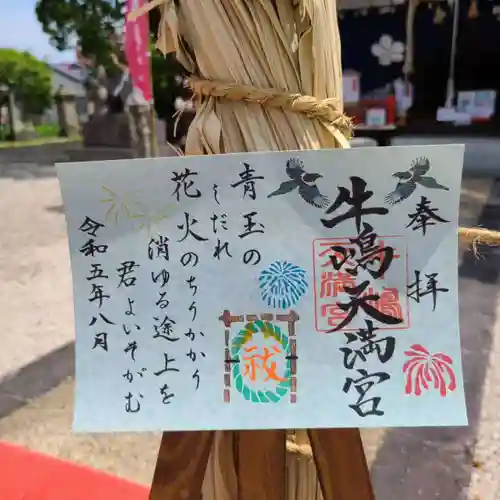 奉拝
牛嶋天満宮
祓
青玉の
しだれ
花火のちりかかり
消ゆる途上を
君よいそがむ
令和五年八月